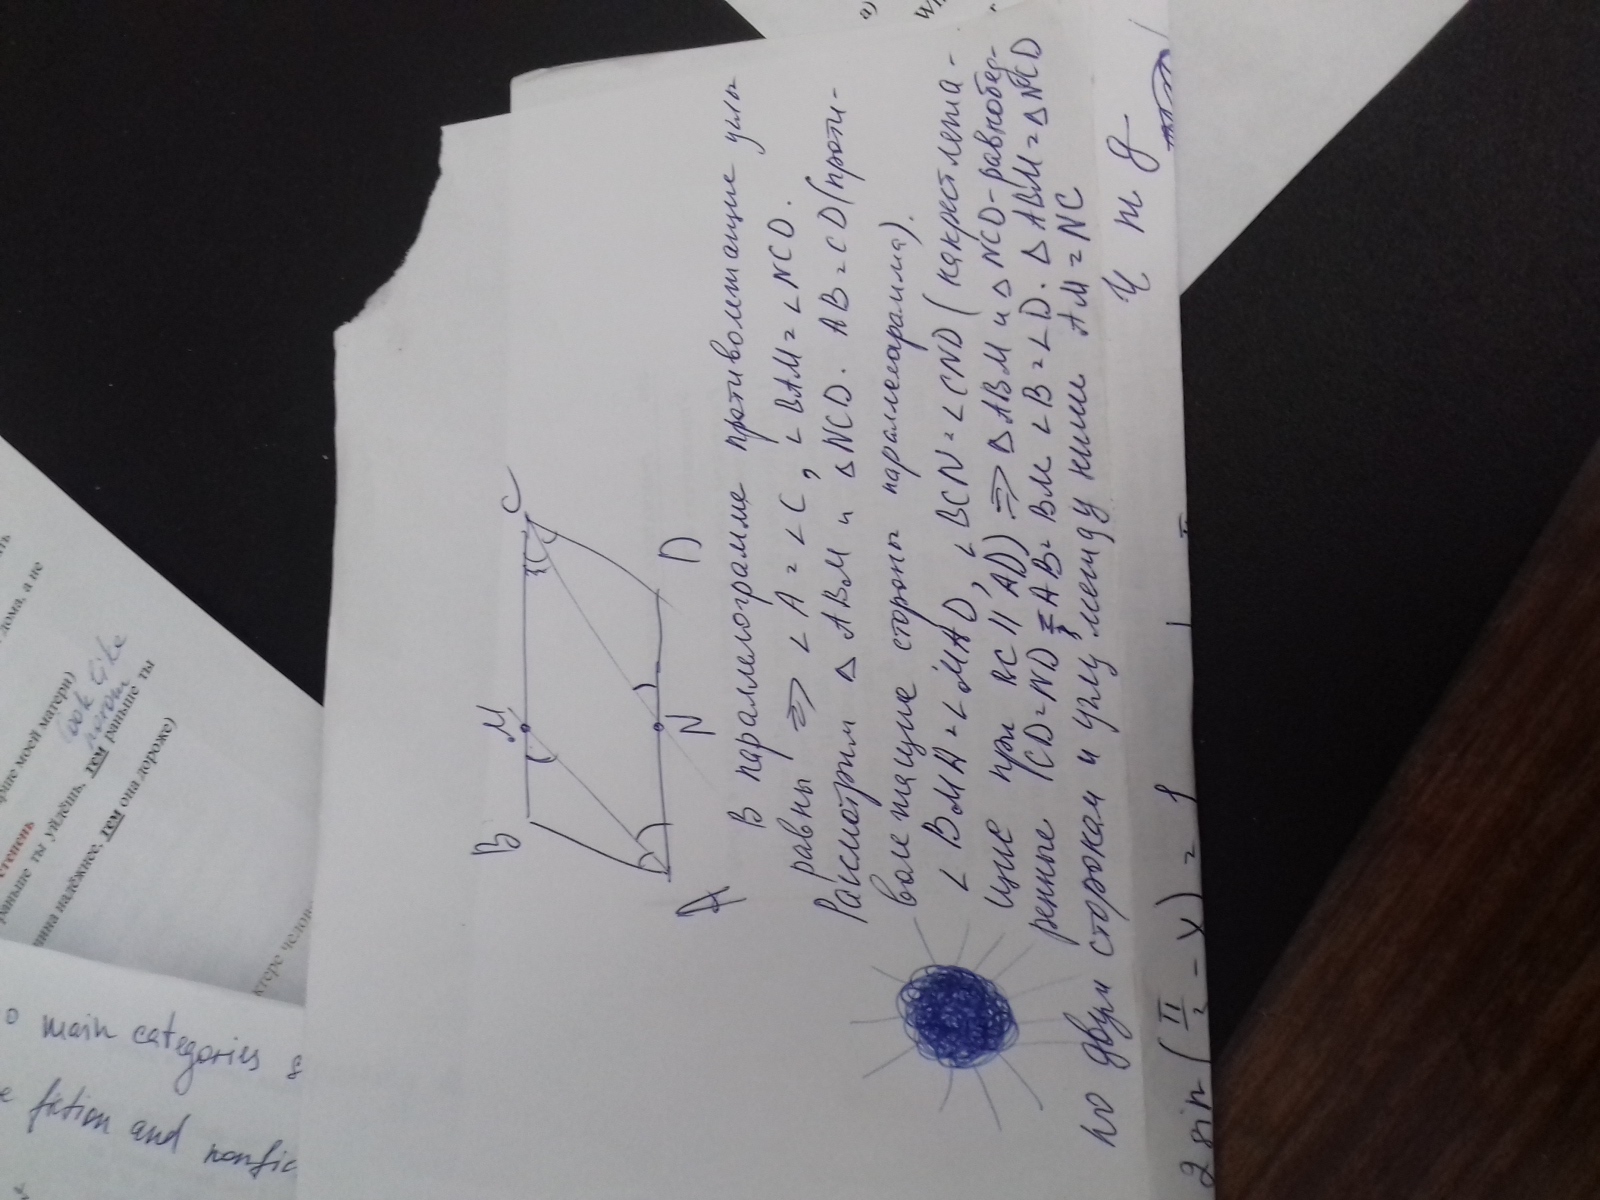 B
M
C
A
N
D
В параллелограмме противолежащие углы
равны => ∠A = ∠C, ∠BAM = ∠NCD.
Рассмотрим △ABM и △NCD. AB = CD (проти-
волежащие стороны параллелограмма).
∠BMA = ∠MAD, ∠BCN = ∠CND (накрестлежа-
щие при BC || AD) => △ABM и △NCD - равнобед-
ренные CD = ND = AB = BM ∠B = ∠D. △ABM = △NCD
по двум сторонам и углу между ними AM = NC
ч т д
2 sin (π/2 - x) = 1
look like
main categories
fiction and
дома, а не
арше моей матери)
степень
раньше ты уйдёшь, тем раньше ты
шина надёжнее, тем она дороже)
ктере челов